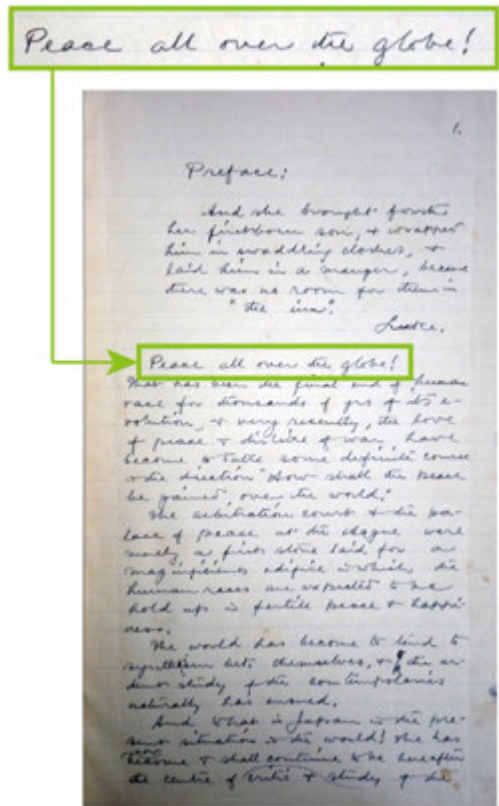 Peace all over the globe!
1.
Preface:
And she brought fourth
her firstborn son, & wrapped
him in swaddling clothes, &
laid him in a manger, because
there was no room for them in
"the inn".
Luke.
Peace all over the globe!
That has been the final end of human
race for thousands of yrs of its e-
volution, & very recently, the love
of peace & dislike of war have
become to take some definite course
& the direction "How shall the peace
be gained over the world."
The arbitration court & the pa-
lace of peace at the Hague were
merely a first stone laid for a
magnificient edifice in which the
human races are expected to be
hold up in fertile peace & happi-
ness.
The world has become to tend to
themselves, & the ar-
dent study of the contemporaries
naturally has ensued.
And what is Japan in the pre-
sent situation in the world! She has
become & shall continue to be hereafter
the centre of critic & study of the